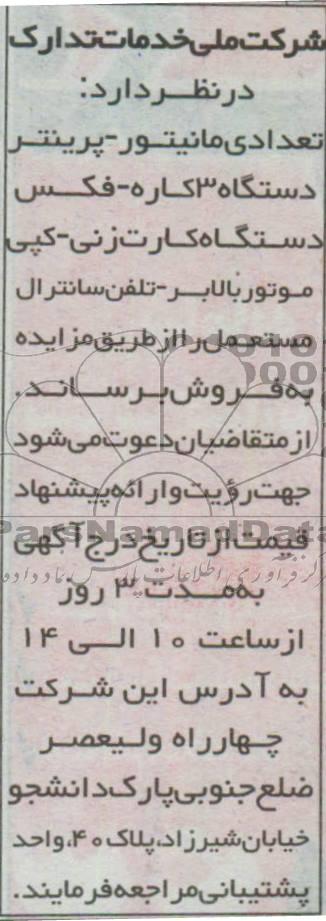 شرکت ملی خدمات تدارک
در نظر دارد:
تعدادی مانیتور-پرینتر
دستگاه ۳ کاره-فکس
دستگاه کارت زنی-کپی
موتور بالابر-تلفن سانترال
مستعمل را از طریق مزایده
به فروش برساند.
از متقاضیان دعوت می شود
جهت رؤیت و ارائه پیشنهاد
ParsNamadData
قیمت از تاریخ درج آگهی
به مدت ۳ روز
از ساعت ۱۰ الی ۱۴
به آدرس این شرکت
چهارراه ولیعصر
ضلع جنوبی پارک دانشجو
خیابان شیرزاد، پلاک ۴۰، واحد
پشتیبانی مراجعه فرمایند.